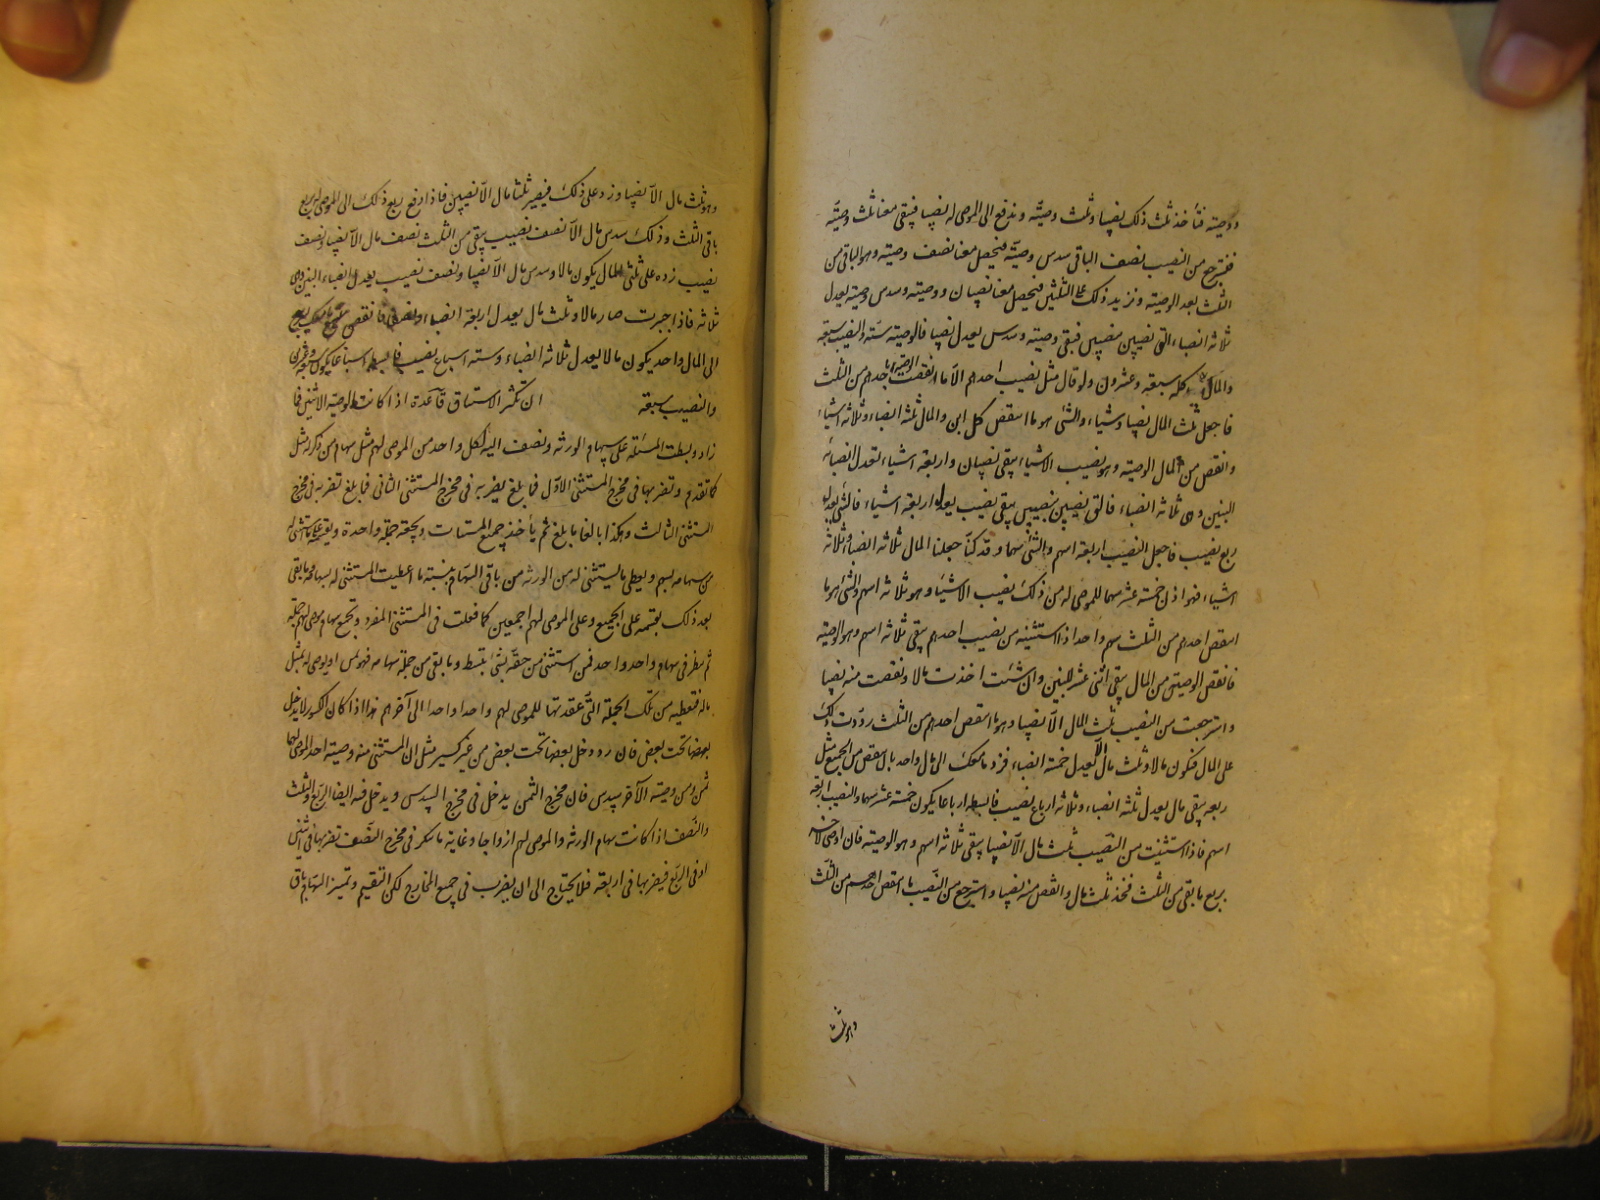 ووصيته فتأخذ ثلث ذلك نصيبا وثلث وصيته وندفع الى الموصى له نصيبا فيبقى معنا ثلث وصيته
فنسترجع من النصيب نصف الباقى سدس وصيته فيحصل معنا نصف وصيته وهو الباقى من
الثلث بعد الوصيته ونزيد ذلك على الثلثين فيحصل معنا نصيبان ووصيته وسدس وصيته يعدل
ثلاثه انصباء القى نصيبين بنصيبين فيبقى وصيته وسدس يعدل نصيبا فالوصيته سته والنصيب سبعه
والمال كله سبعه وعشرون ولو قال مثل نصيب احدهم الا ما انتقصت احدهم من الثلث
فاجعل ثلث المال نصيبا وشياء والشئ هو ما انتقص كل ابن والمال ثلثه انصباء وثلاثه اشياء
وانقص من المال الوصيته وهو نصيب الا شياء يبقى نصيبان واربعه اشياء تعدل انصباء
البنين وهى ثلاثه انصباء فالق نصيبين بنصيبين يبقى نصيب يعدل اربعه اشياء فالشئ يعدل
ربع نصيب فاجعل النصيب اربعه اسهم والشئ سهما وقد كنا جعلنا المال ثلاثه انصباء وثلاثه
اشياء فهو اذن خمسة عشر سهما للموصى له من ذلك نصيب الا شياء وهو ثلاثه اسهم والشئ هو ما
انتقص احدهم من الثلث سهم واحد اذا استثنيته من نصيب احدهم بقى ثلاثه اسهم وهو الوصيته
فانقص الوصيته من المال يبقى اثنى عشر للبنين وان شئت اخذت مالا ونقصت منه نصيبا
واسترجعت من النصيب ثلث المال الا نصيبا وهو ما انتقص احدهم من الثلث رددت ذلك
على المال فيكون مالا وثلث مال يعدل خمسة انصباء فرد ما معك الى مال واحد بان تنقص من الجميع مثل
ربعه يبقى مال يعدل ثلثه انصباء وثلاثه ارباع نصيب فابسطه ارباعا يكون خمسة عشر سهما والنصيب اربعه
اسهم فاذا استثنيت من النصيب ثلث مال الا نصيبا يبقى ثلاثه اسهم وهو الوصيته فان اوصى لآخر
بربع ما بقى من الثلث فخذ ثلث مال وانقص منه نصيبا واسترجع من النصيب ما انتقص احدهم من الثلث
وهو ثلث
وهو ثلث مال الا نصيبا وزد على ذلك فيصير ثلثا مال الا نصيبين فاذا دفع ربع ذلك الى الموصى له بربع
باقى الثلث وذلك سدس مال الا نصف نصيب يبقى من الثلث نصف مال الا نصيبا ونصف
نصيب زده على ثلثى المال يكون مالا وسدس مال الا نصيبا ونصف نصيب يعدل انصباء البنين وهى
ثلاثه فاذا جبرت صار مالا وثلث مال يعدل اربعة انصباء ونصف فانقص
الى المال واحد يكون مالا يعدل ثلاثه انصباء وسته اسباع نصيب فابسطه اسباعا يكون سبعه وعشرين
والنصيب سبعه ان تكثر الاستثناق قاعدة اذا كانت الوصيه لاثنين فما
زاد وبسطت المسئله على سهام الورثه ونصف اليه لكل واحد من الموصى لهم مثل سهام من ذكر له مثل
كما تقدم وتضربها فى مخرج المستثنى الاول فما بلغ يضربه فى مخرج المستثنى الثانى فما بلغ تضربه فى مخرج
المستثنى الثالث وهكذا بالغا ما بلغ ثم يأخذ جميع المستثنيات وتجعله جملة واحدة
من سهامه بسهم ويعطى ما يستثنى له من الورثه من باقى السهام بنسبة ما اعطيت المستثنى له بسهامه فما بقى
بعد ذلك يقسمه على الجميع وعلى الموصى لهم اجمعين كما فعلت فى المستثنى المفرد وتجمع سهام موصى لهم جمله
ثم ينظر فى سهام واحد واحد فمن استثنى من حقه بشئ يبسط وما بقى من جملة سهامه فهو لمن اوصى له بمثل
ماله فتعطيه من تلك الجملة التى عقدتها للموصى لهم واحدا واحدا الى آخرهم هذا اذا كان الكسور لا يدخل
بعضها تحت بعض فان ورد دخل بعضها تحت بعض من غير كسير مثل ان المستثنى منه وصيته احد الموصى لهما
ثمن ومن وصيته الآخر سدس فان مخرج الثمن يدخل فى مخرج السدس ويدخل فيه ايضا الربع والثلث
والنصف اذا كانت سهام الورثه والموصى لهم ازواجا وغاية ما ينكسر فى مخرج النصف تضربها فى اثنين
او فى الربع فيضربها فى اربعه فلا يحتاج الى ان يضرب فى جميع المخارج لكن التقسيم وتميز السهام باق